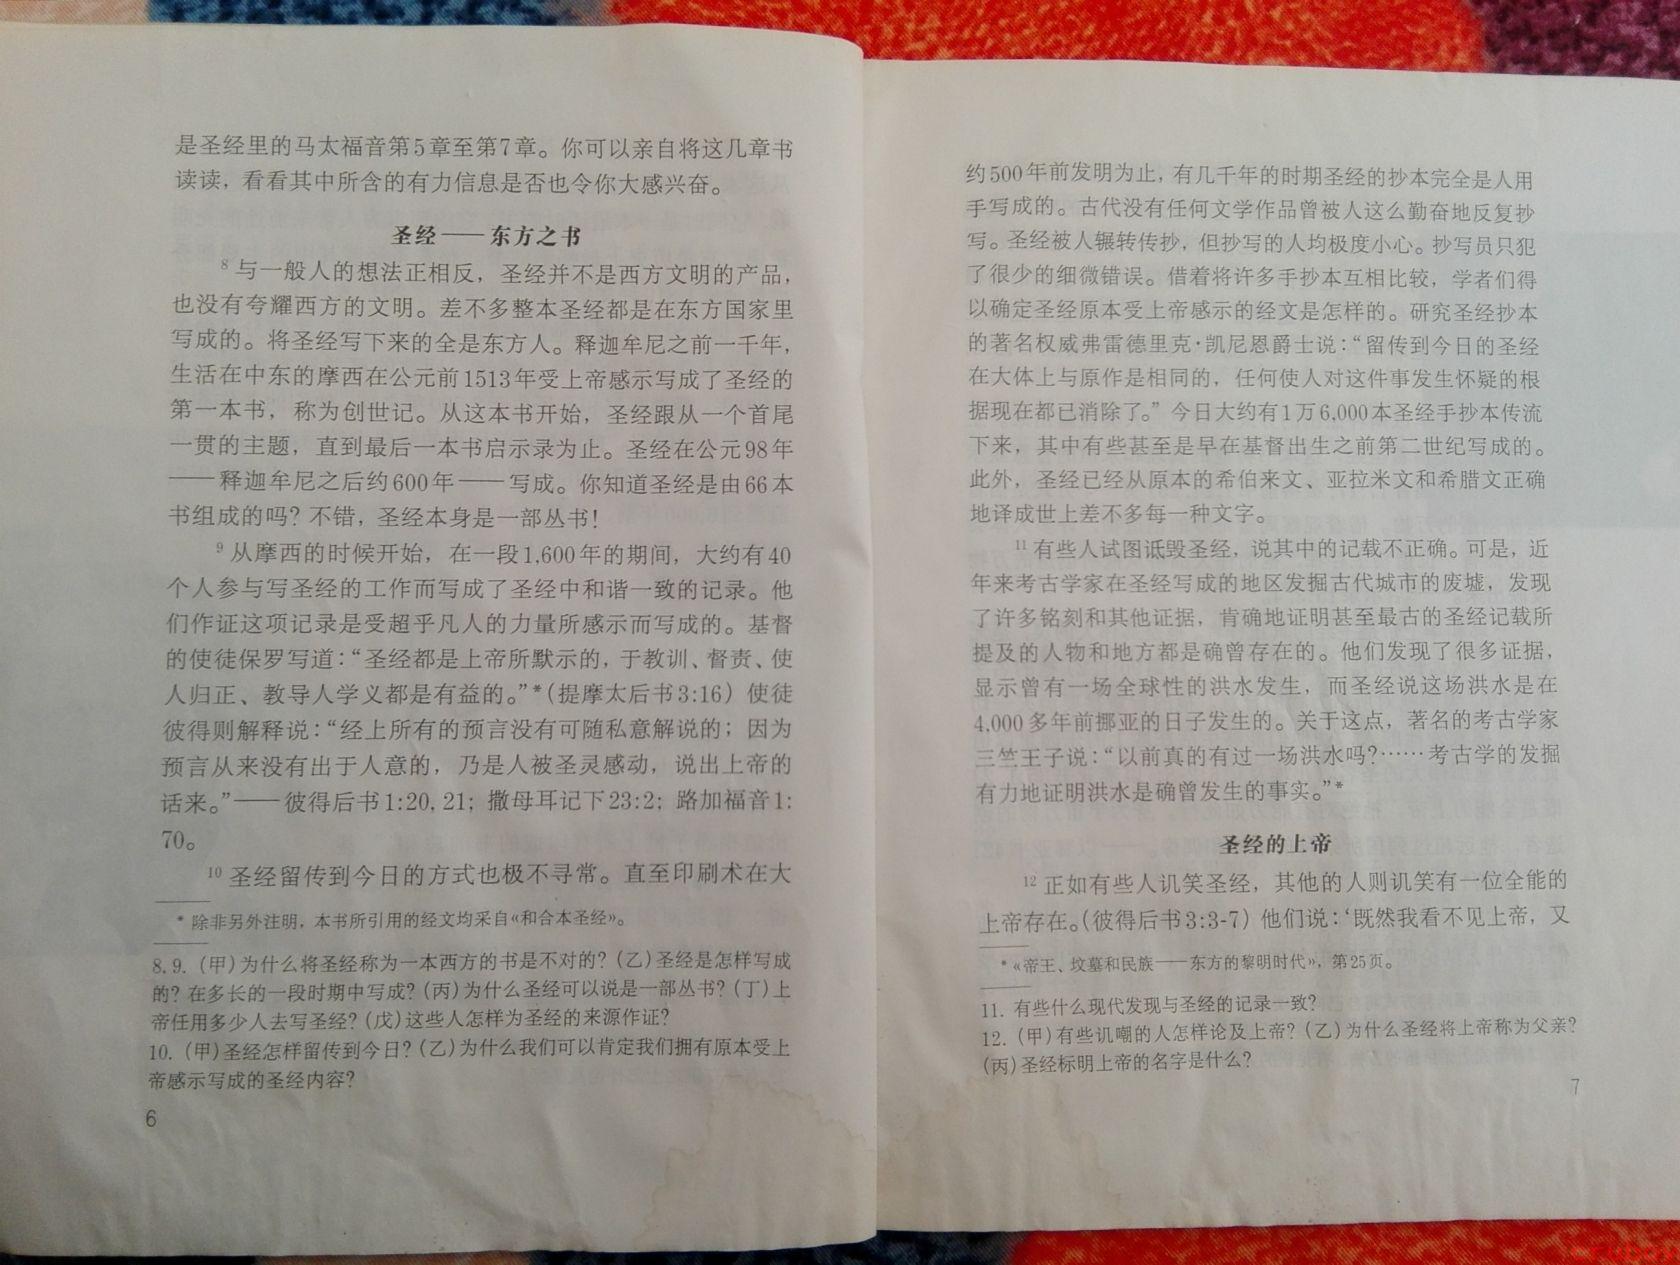 是圣经里的马太福音第5章至第7章。你可以亲自将这几章书
读读，看看其中所含的有力信息是否也令你大感兴奋。
圣经——东方之书
8 与一般人的想法正相反，圣经并不是西方文明的产品，
也没有夸耀西方的文明。差不多整本圣经都是在东方国家里
写成的。将圣经写下来的全是东方人。释迦牟尼之前一千年，
生活在中东的摩西在公元前1513年受上帝感示写成了圣经的
第一本书，称为创世记。从这本书开始，圣经跟从一个首尾
一贯的主题，直到最后一本书启示录为止。圣经在公元98年
——释迦牟尼之后约600年——写成。你知道圣经是由66本
书组成的吗？不错，圣经本身是一部丛书！
9 从摩西的时候开始，在一段1,600年的期间，大约有40
个人参与写圣经的工作而写成了圣经中和谐一致的记录。他
们作证这项记录是受超乎凡人的力量所感示而写成的。基督
的使徒保罗写道：“圣经都是上帝所默示的，于教训、督责、使
人归正、教导人学义都是有益的。”*（提摩太后书3:16）使徒
彼得则解释说：“经上所有的预言没有可随私意解说的；因为
预言从来没有出于人意的，乃是人被圣灵感动，说出上帝的
话来。”——彼得后书1:20, 21；撒母耳记下23:2；路加福音1:
70。
10 圣经留传到今日的方式也极不寻常。直至印刷术在大
* 除非另外注明，本书所引用的经文均采自《和合本圣经》。
8,9.（甲）为什么将圣经称为一本西方的书是不对的？（乙）圣经是怎样写成
的？在多长的一段时期中写成？（丙）为什么圣经可以说是一部丛书？（丁）上
帝任用多少人去写圣经？（戊）这些人怎样为圣经的来源作证？
10.（甲）圣经怎样留传到今日？（乙）为什么我们可以肯定我们拥有原本受上
帝感示写成的圣经内容？
6
约500年前发明为止，有几千年的时期圣经的抄本完全是人用
手写成的。古代没有任何文学作品曾被人这么勤奋地反复抄
写。圣经被人辗转传抄，但抄写的人均极度小心。抄写员只犯
了很少的细微错误。借着将许多手抄本互相比较，学者们得
以确定圣经原本受上帝感示的经文是怎样的。研究圣经抄本
的著名权威弗雷德里克·凯尼恩爵士说：“留传到今日的圣经
在大体上与原作是相同的，任何使人对这件事发生怀疑的根
据现在都已消除了。”今日大约有1万6,000本圣经手抄本传流
下来，其中有些甚至是早在基督出生之前第二世纪写成的。
此外，圣经已经从原本的希伯来文、亚拉米文和希腊文正确
地译成世上差不多每一种文字。
11 有些人试图诋毁圣经，说其中的记载不正确。可是，近
年来考古学家在圣经写成的地区发掘古代城市的废墟，发现
了许多铭刻和其他证据，肯确地证明甚至最古的圣经记载所
提及的人物和地方都是确曾存在的。他们发现了很多证据，
显示曾有一场全球性的洪水发生，而圣经说这场洪水是在
4,000多年前挪亚的日子发生的。关于这点，著名的考古学家
三笠王子说：“以前真的有过一场洪水吗？……考古学的发掘
有力地证明洪水是确曾发生的事实。”*
圣经的上帝
12 正如有些人讥笑圣经，其他的人则讥笑有一位全能的
上帝存在。（彼得后书3:3-7）他们说：‘既然我看不见上帝，又
* 《帝王、坟墓和民族——东方的黎明时代》，第25页。
11. 有些什么现代发现与圣经的记录一致？
12.（甲）有些讥嘲的人怎样论及上帝？（乙）为什么圣经将上帝称为父亲？
（丙）圣经标明上帝的名字是什么？
7